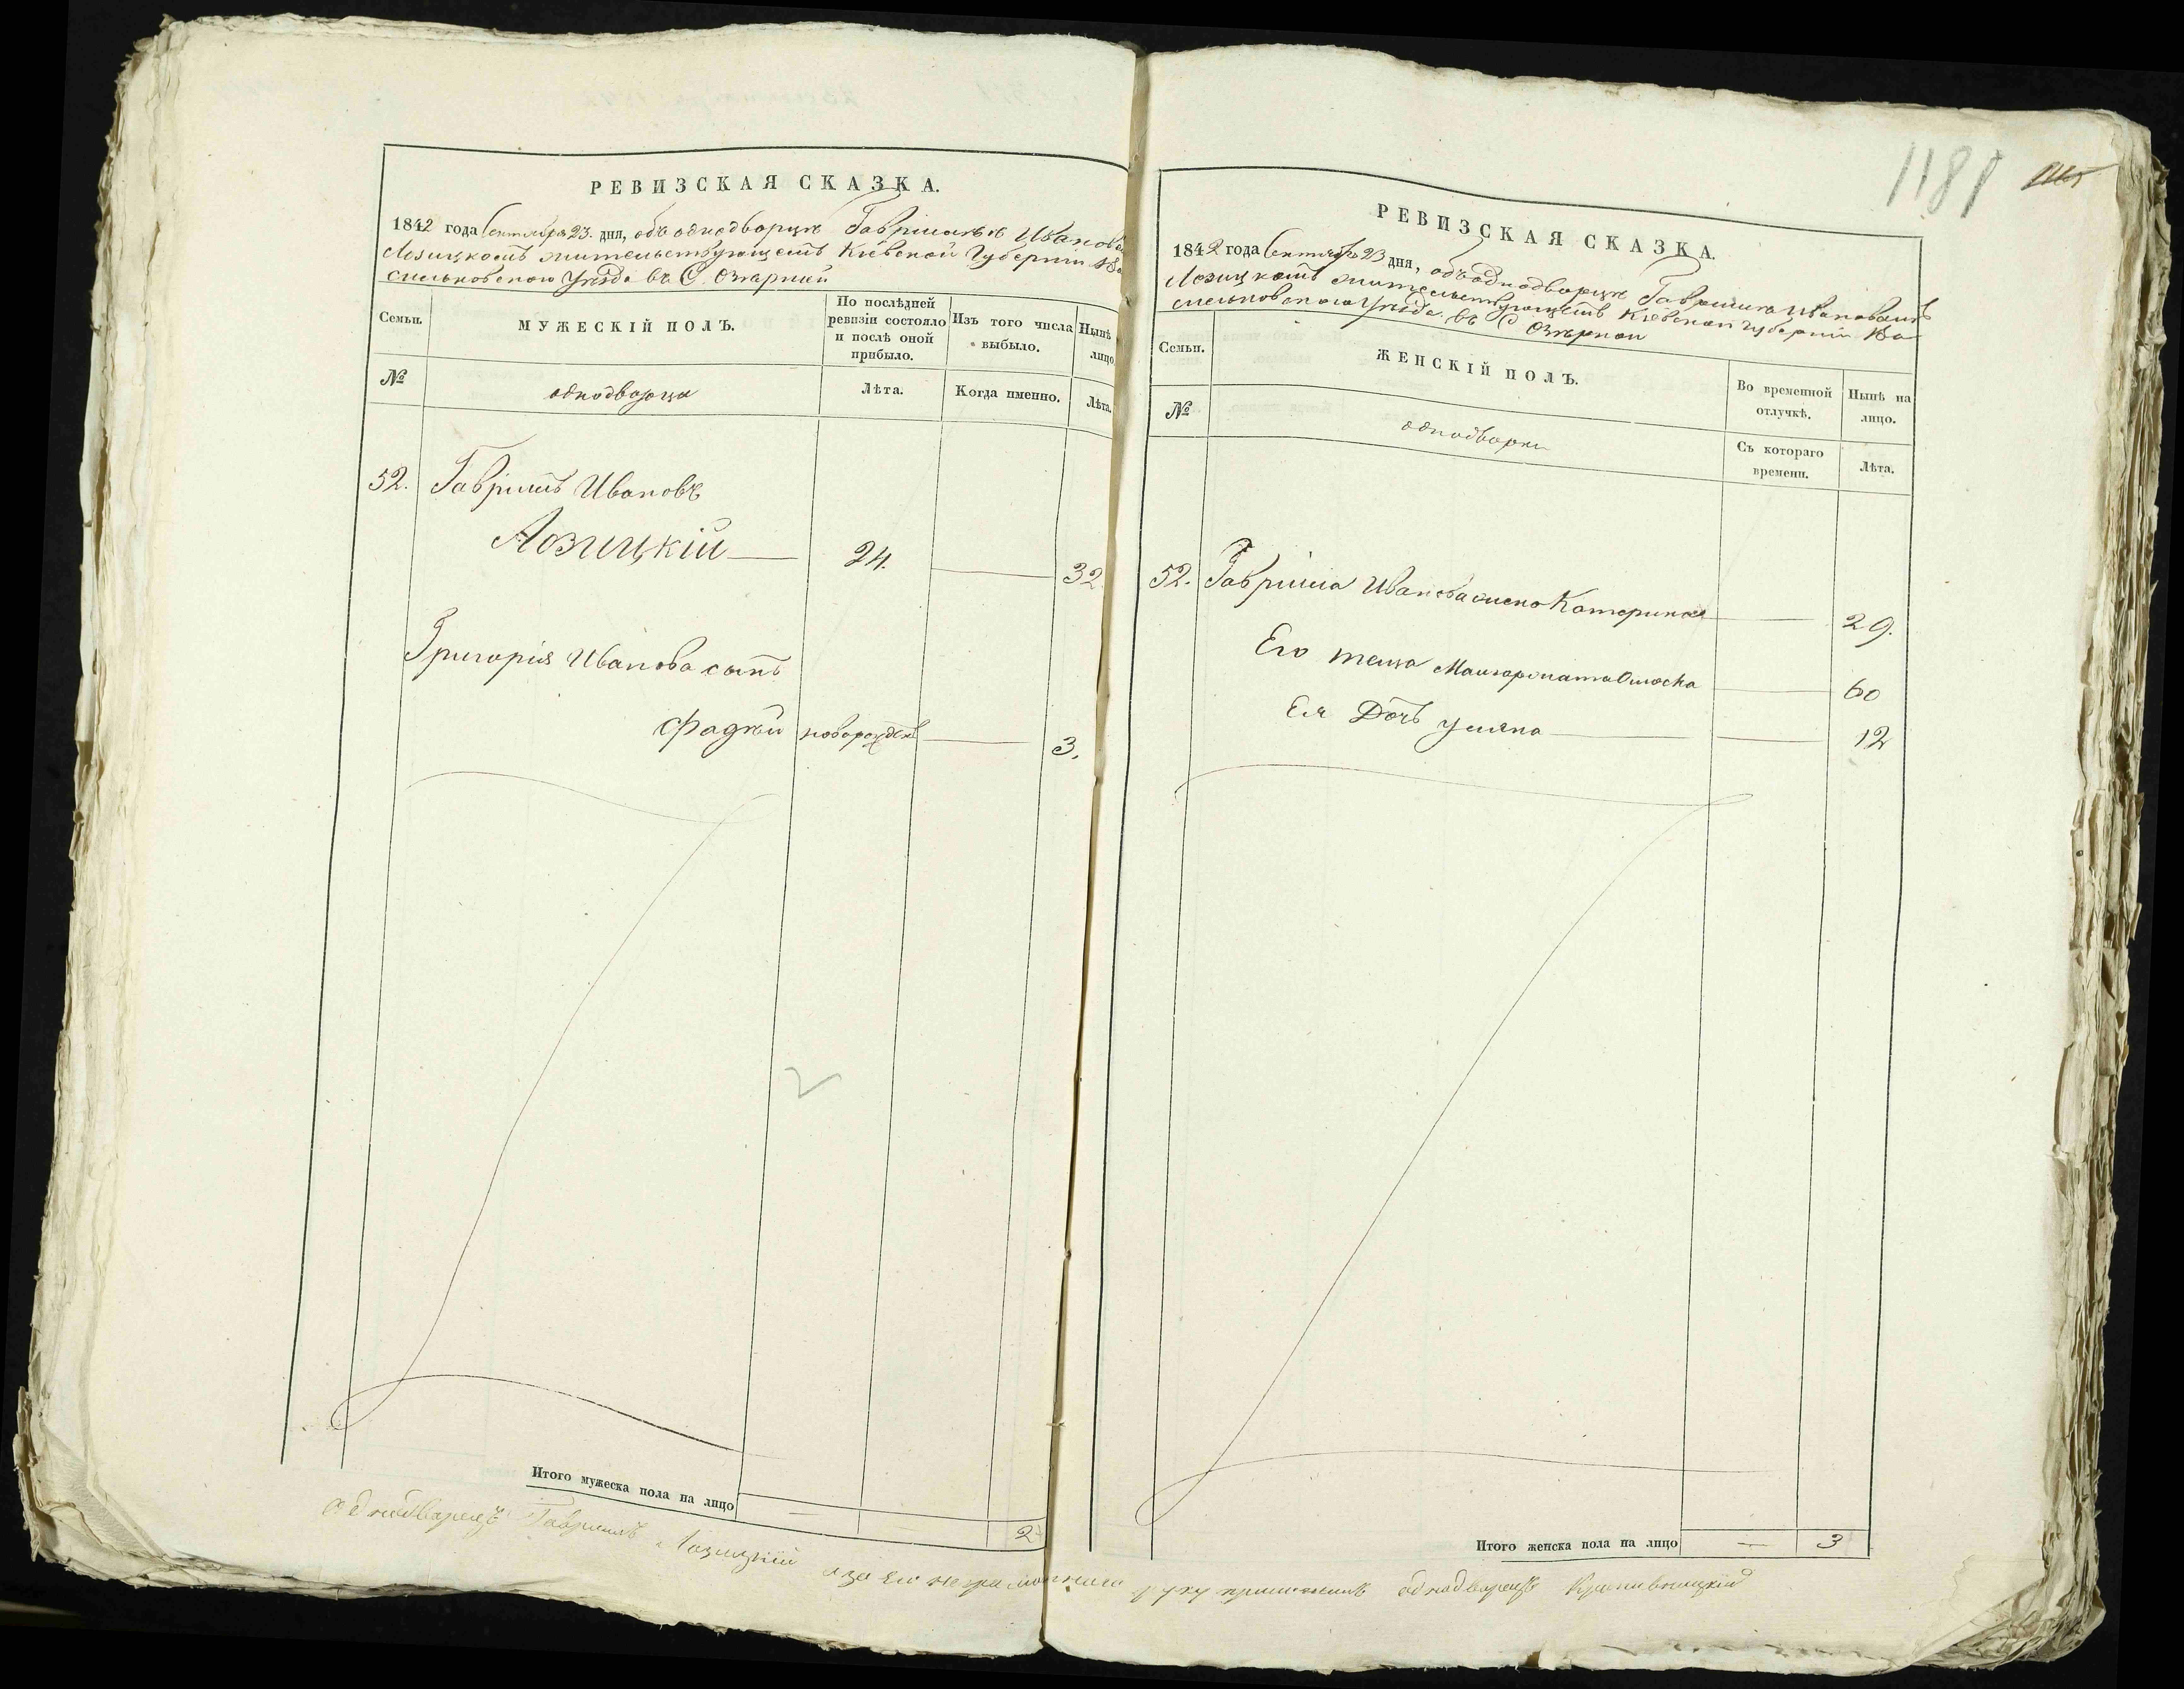 РЕВИЗСКАЯ СКАЗКА.
1842 года Сентября 23. дня, объ однодворце Гавриле Иванове
Лозицкомъ жительствующемъ Кіевской Губерніи Ва
сильковскаго Уезда въ С. Озирней
Семьи.
МУЖЕСКІЙ ПОЛЪ.
По послѣдней ревизіи состояло и послѣ оной прибыло.
Изъ того числа выбыло.
Нынѣ лицо
№
однодворцы
Лѣта.
Когда именно.
Лѣта.
52. Гаврилъ Ивановъ
Лозицкій 24. 32
Григорія Иванова сынъ
Фадей новорожден 3.
Итого мужеска пола на лицо — 2
1181
РЕВИЗСКАЯ СКАЗКА.
1842 года Сентября 23 дня, объ однодворце Гавриле Ивановомъ
Лозицкомъ жительствующемъ Кіевской Губерніи Ва
сильковскаго Уезда въ С Озирной
Семьи.
ЖЕНСКІЙ ПОЛЪ.
Во временной отлучкѣ.
Нынѣ на лицо.
№
однодворки
Съ котораго времени.
Лѣта.
52. Гаврила Иванова жена Катерина 29.
Его теща 60
Ея Дочь Уляна 12
Итого женска пола на лицо — 3
однодворецъ Гаврилъ Лозицкій а за его неграмотнаго руку приложилъ однодворецъ Крапивницкій